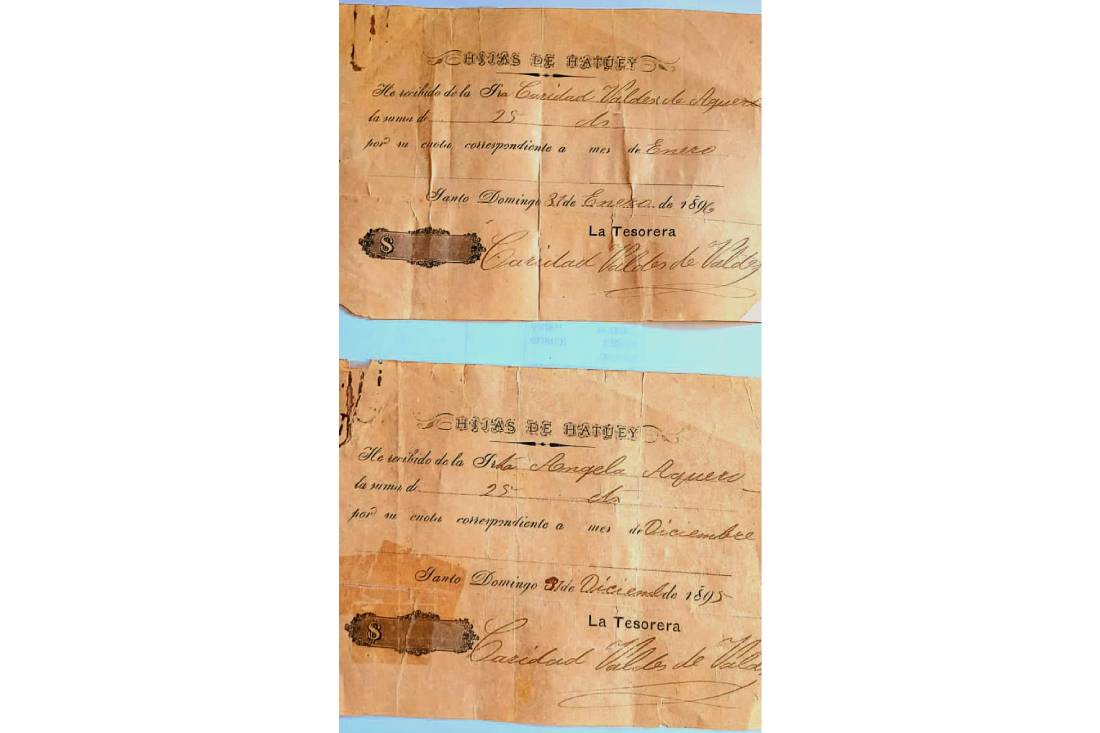 HIJAS DE HATUEY
He recibido de la Sra Caridad Valdes de Aquero
la suma de 25 cts
por su cuota correspondiente a mes de Enero
Santo Domingo 31 de Enero de 1896
La Tesorera
$
Caridad Valdes de Valdes
HIJAS DE HATUEY
He recibido de la Srta Angela Aquero
la suma de 25 cts
por su cuota correspondiente a mes de Diciembre
Santo Domingo 31 de Diciem de 1895
La Tesorera
$
Caridad Valdes de Valdes